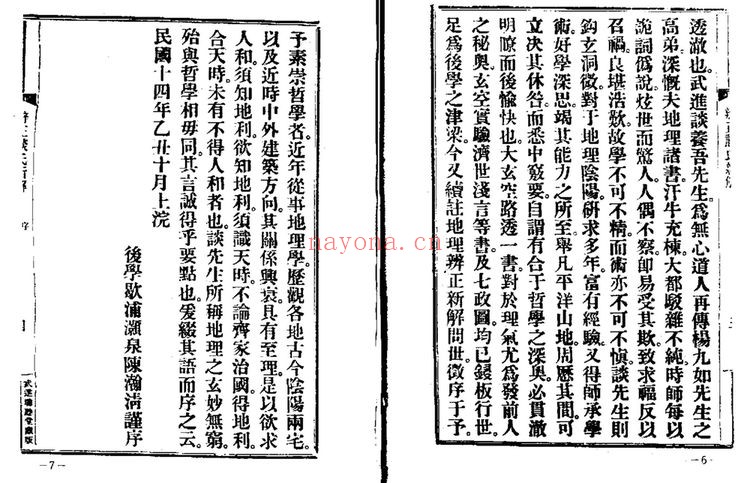 透澈也武進談養吾先生爲無心道人再傳楊九如先生之
高弟深慨夫地理諸書汗牛充棟大都駁雜不純時師每以
詭詞僞說炫世而驚人人偶不察卽易受其欺致求福反以
召禍良堪浩歎故學不可不精而術亦不可不愼談先生則
鈎玄洞微對于地理陰陽研求多年富有經驗又得師承學
術好學深思竭其能力之所至舉凡平洋山地周歷其間可
立决其休咎而悉中竅要自謂有合于哲學之深奧必貫澈
明暸而後愉快也大玄空路透一書對於理氣尤爲發前人
之秘奧玄空實驗濟世淺言等書及七政圖均已鋟板行世
足爲後學之津梁今又續註地理辨正新解問世徵序于予
—6—
予素崇哲學者近年從事地理學歷觀各地古今陰陽兩宅
以及近時中外建築方向其關係興衰具有至理是以欲求
人和須知地利欲知地利須識天時不論齊家治國得地利
合天時未有不得人和者也談先生所稱地理之玄妙無窮
殆與哲學相毋同其言誠得乎要點也爰綴其語而序之云
民國十四年乙丑十月上浣
後學歇浦灝泉陳瀚淸謹序
序
四
武進聽聽堂藏版
—7—
nayona.cn